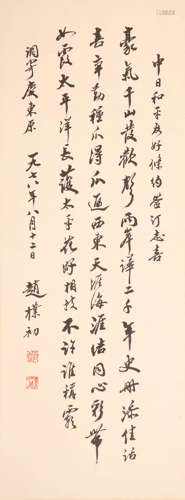 中日和平友好條約簽訂志喜
豪氣千山發歡聲兩岸譁二千年史冊添佳話
喜辛勤種瓜得瓜遍西東天涯海涯結同心彩帶
如霞太平洋長護太平花好相扶不許誰稱霸
調寄慶東原 一九七八年八月十二日 趙樸初